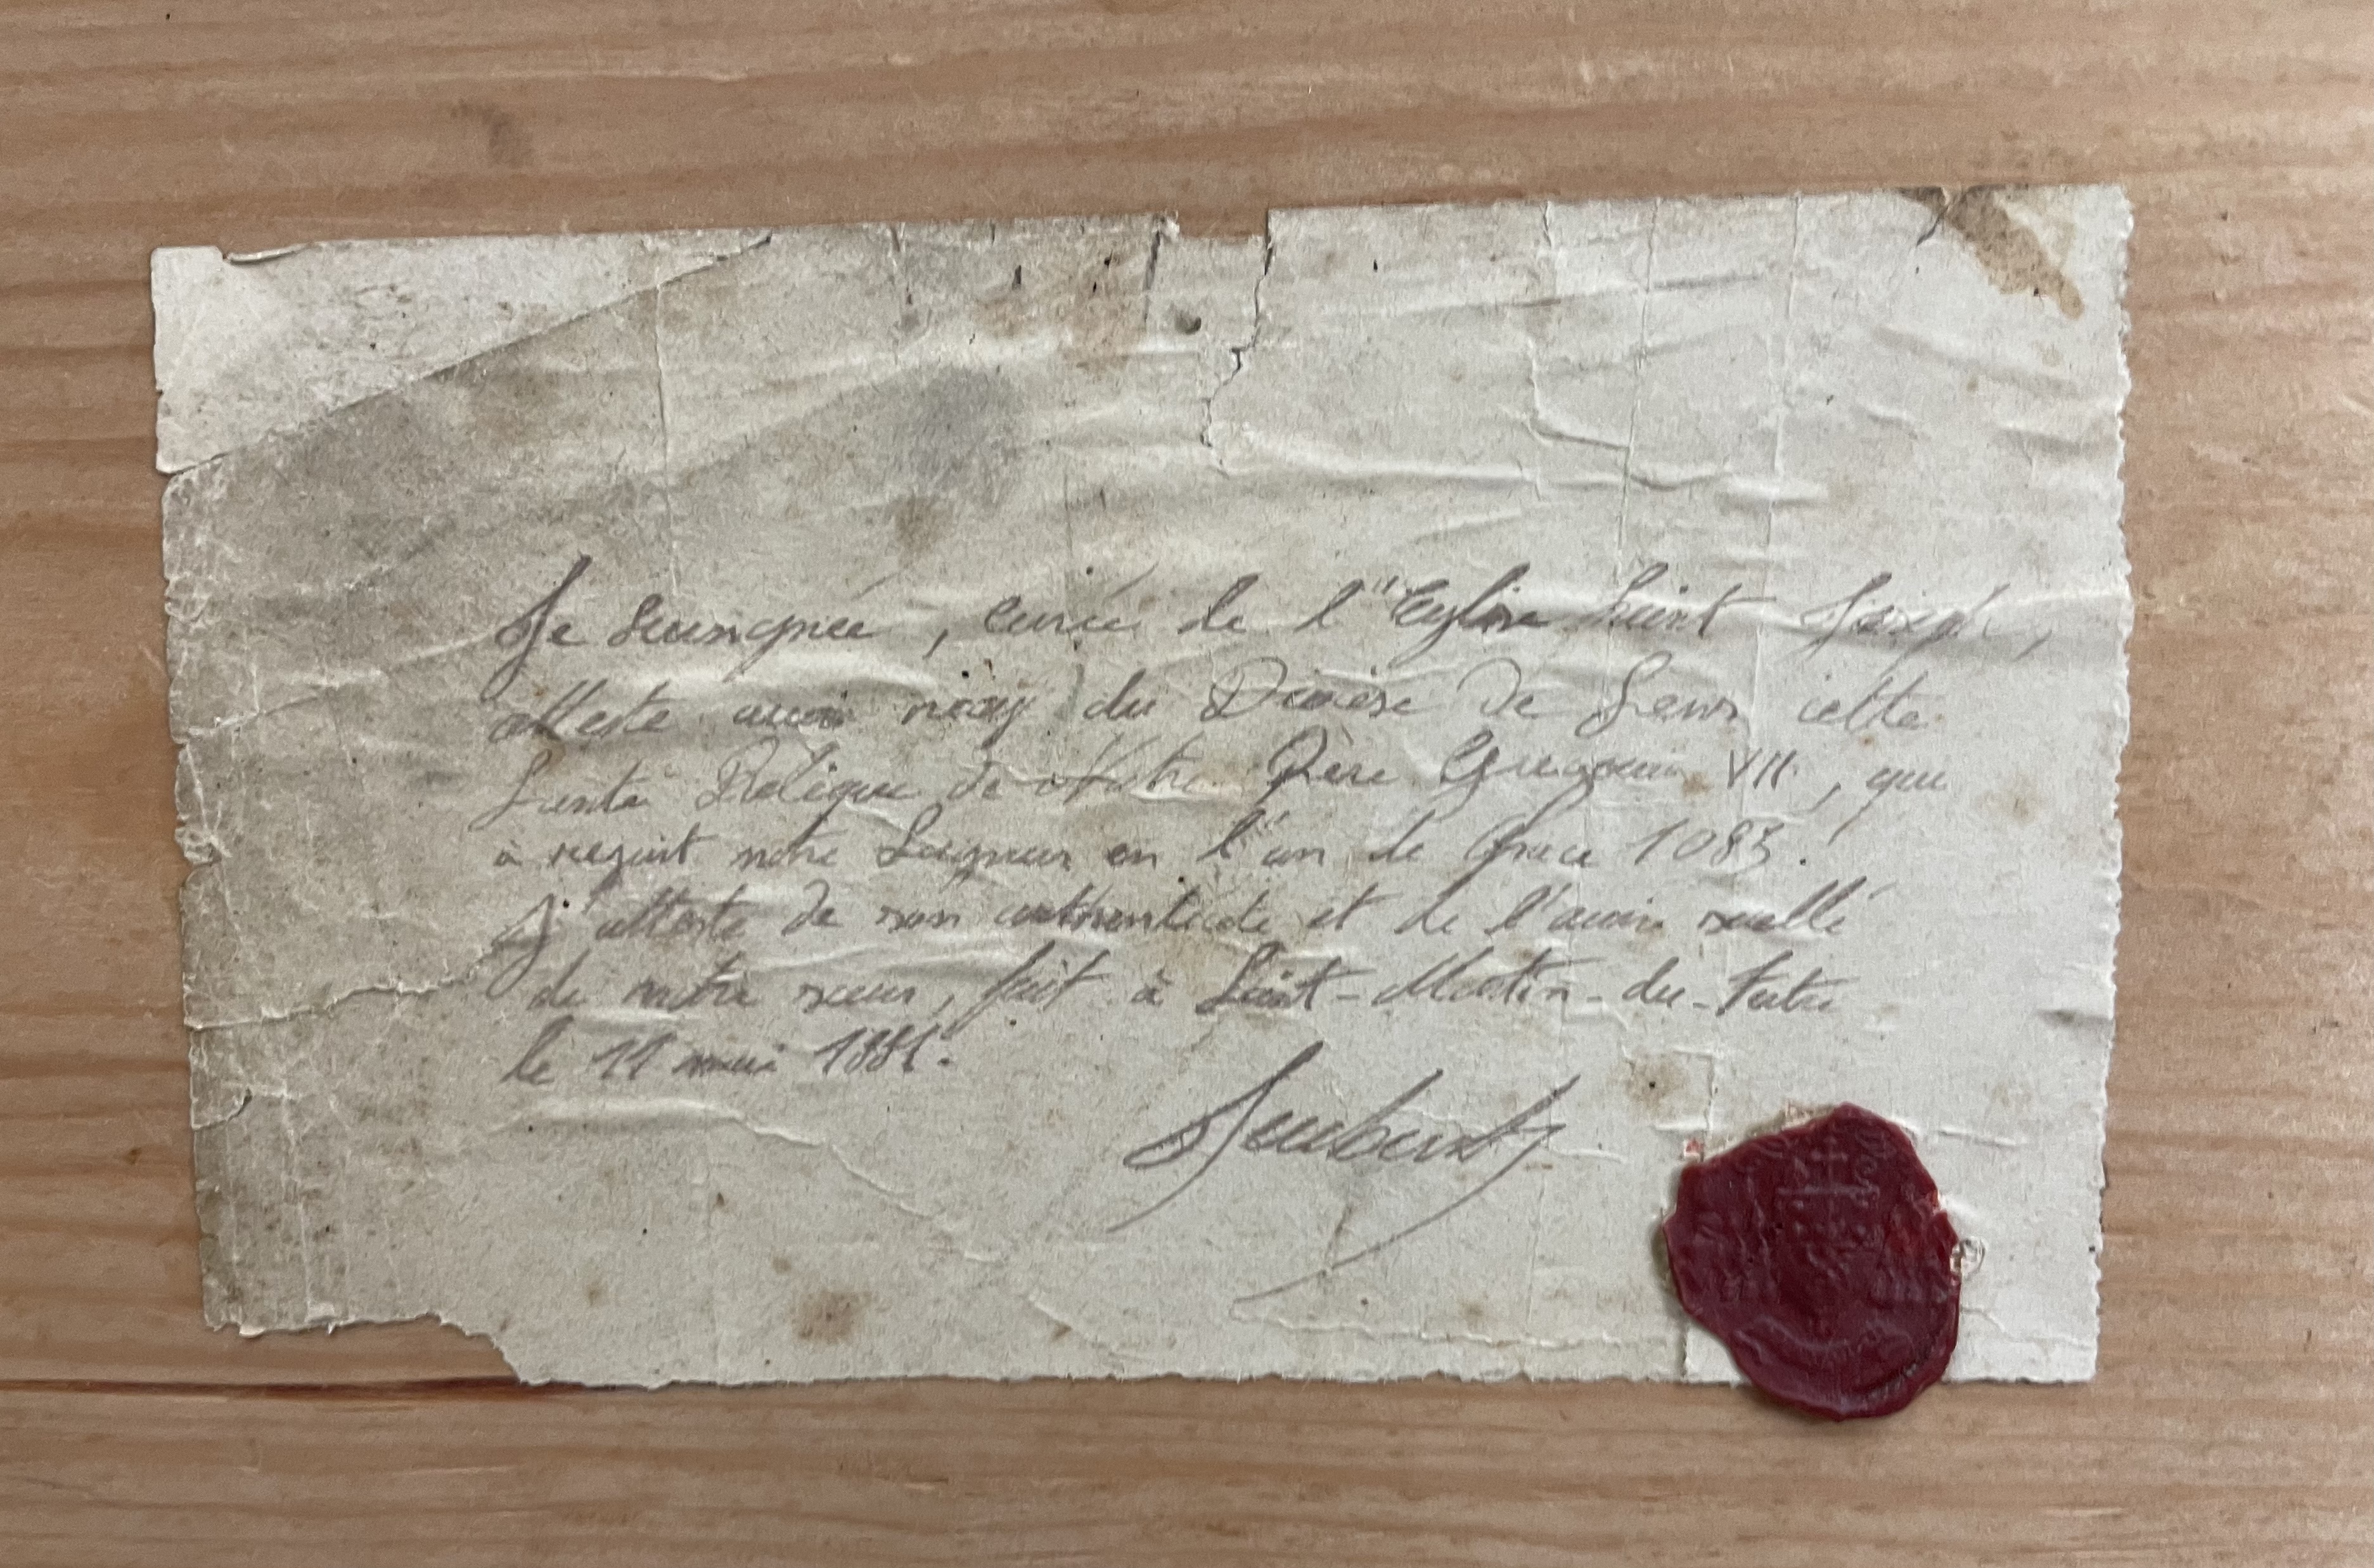 Je sousignée, curée de l'Eglise Saint Joseph,
atteste avoir du Diocèse de Sens cette
Sainte Relique de Notre Père Gregoire VII, qui
à rejoint notre Seigneur en l'an de Grace 1085.
J'atteste de son authenticité et de l'avoir scellé
de notre sceau, fait à Saint-Martin-du-Tertre
le 11 mai 1881.